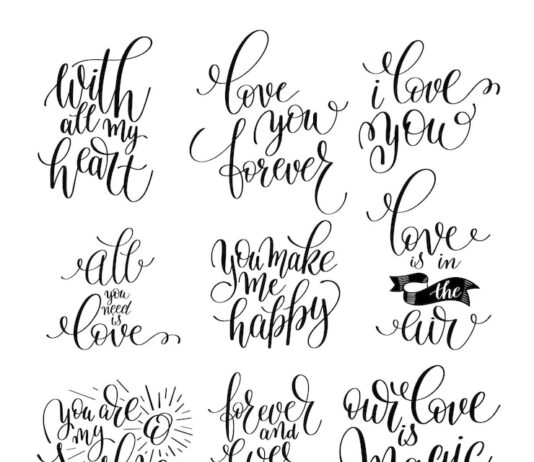 with
all my
heart
love
you
forever
i love
you
all
you
need
is
love
you make
me
happy
love
is in
the
air
you are
my
forever
and
our love
is